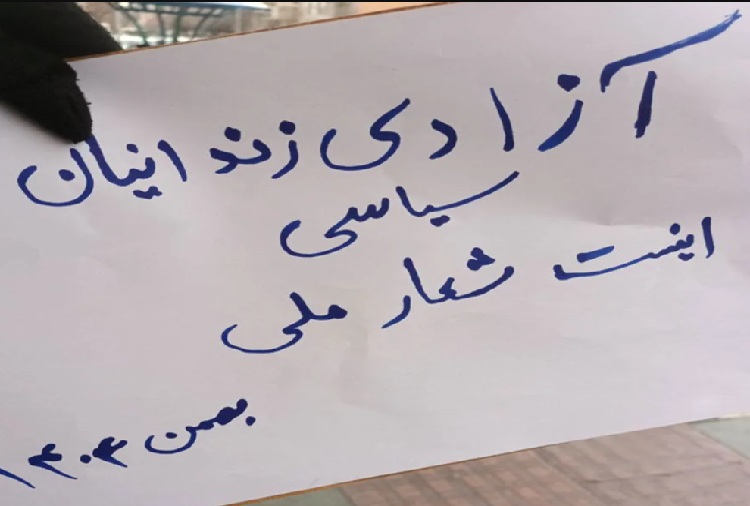 آزادی زندانیان
سیاسی
اینست شعار ملی
بهمن